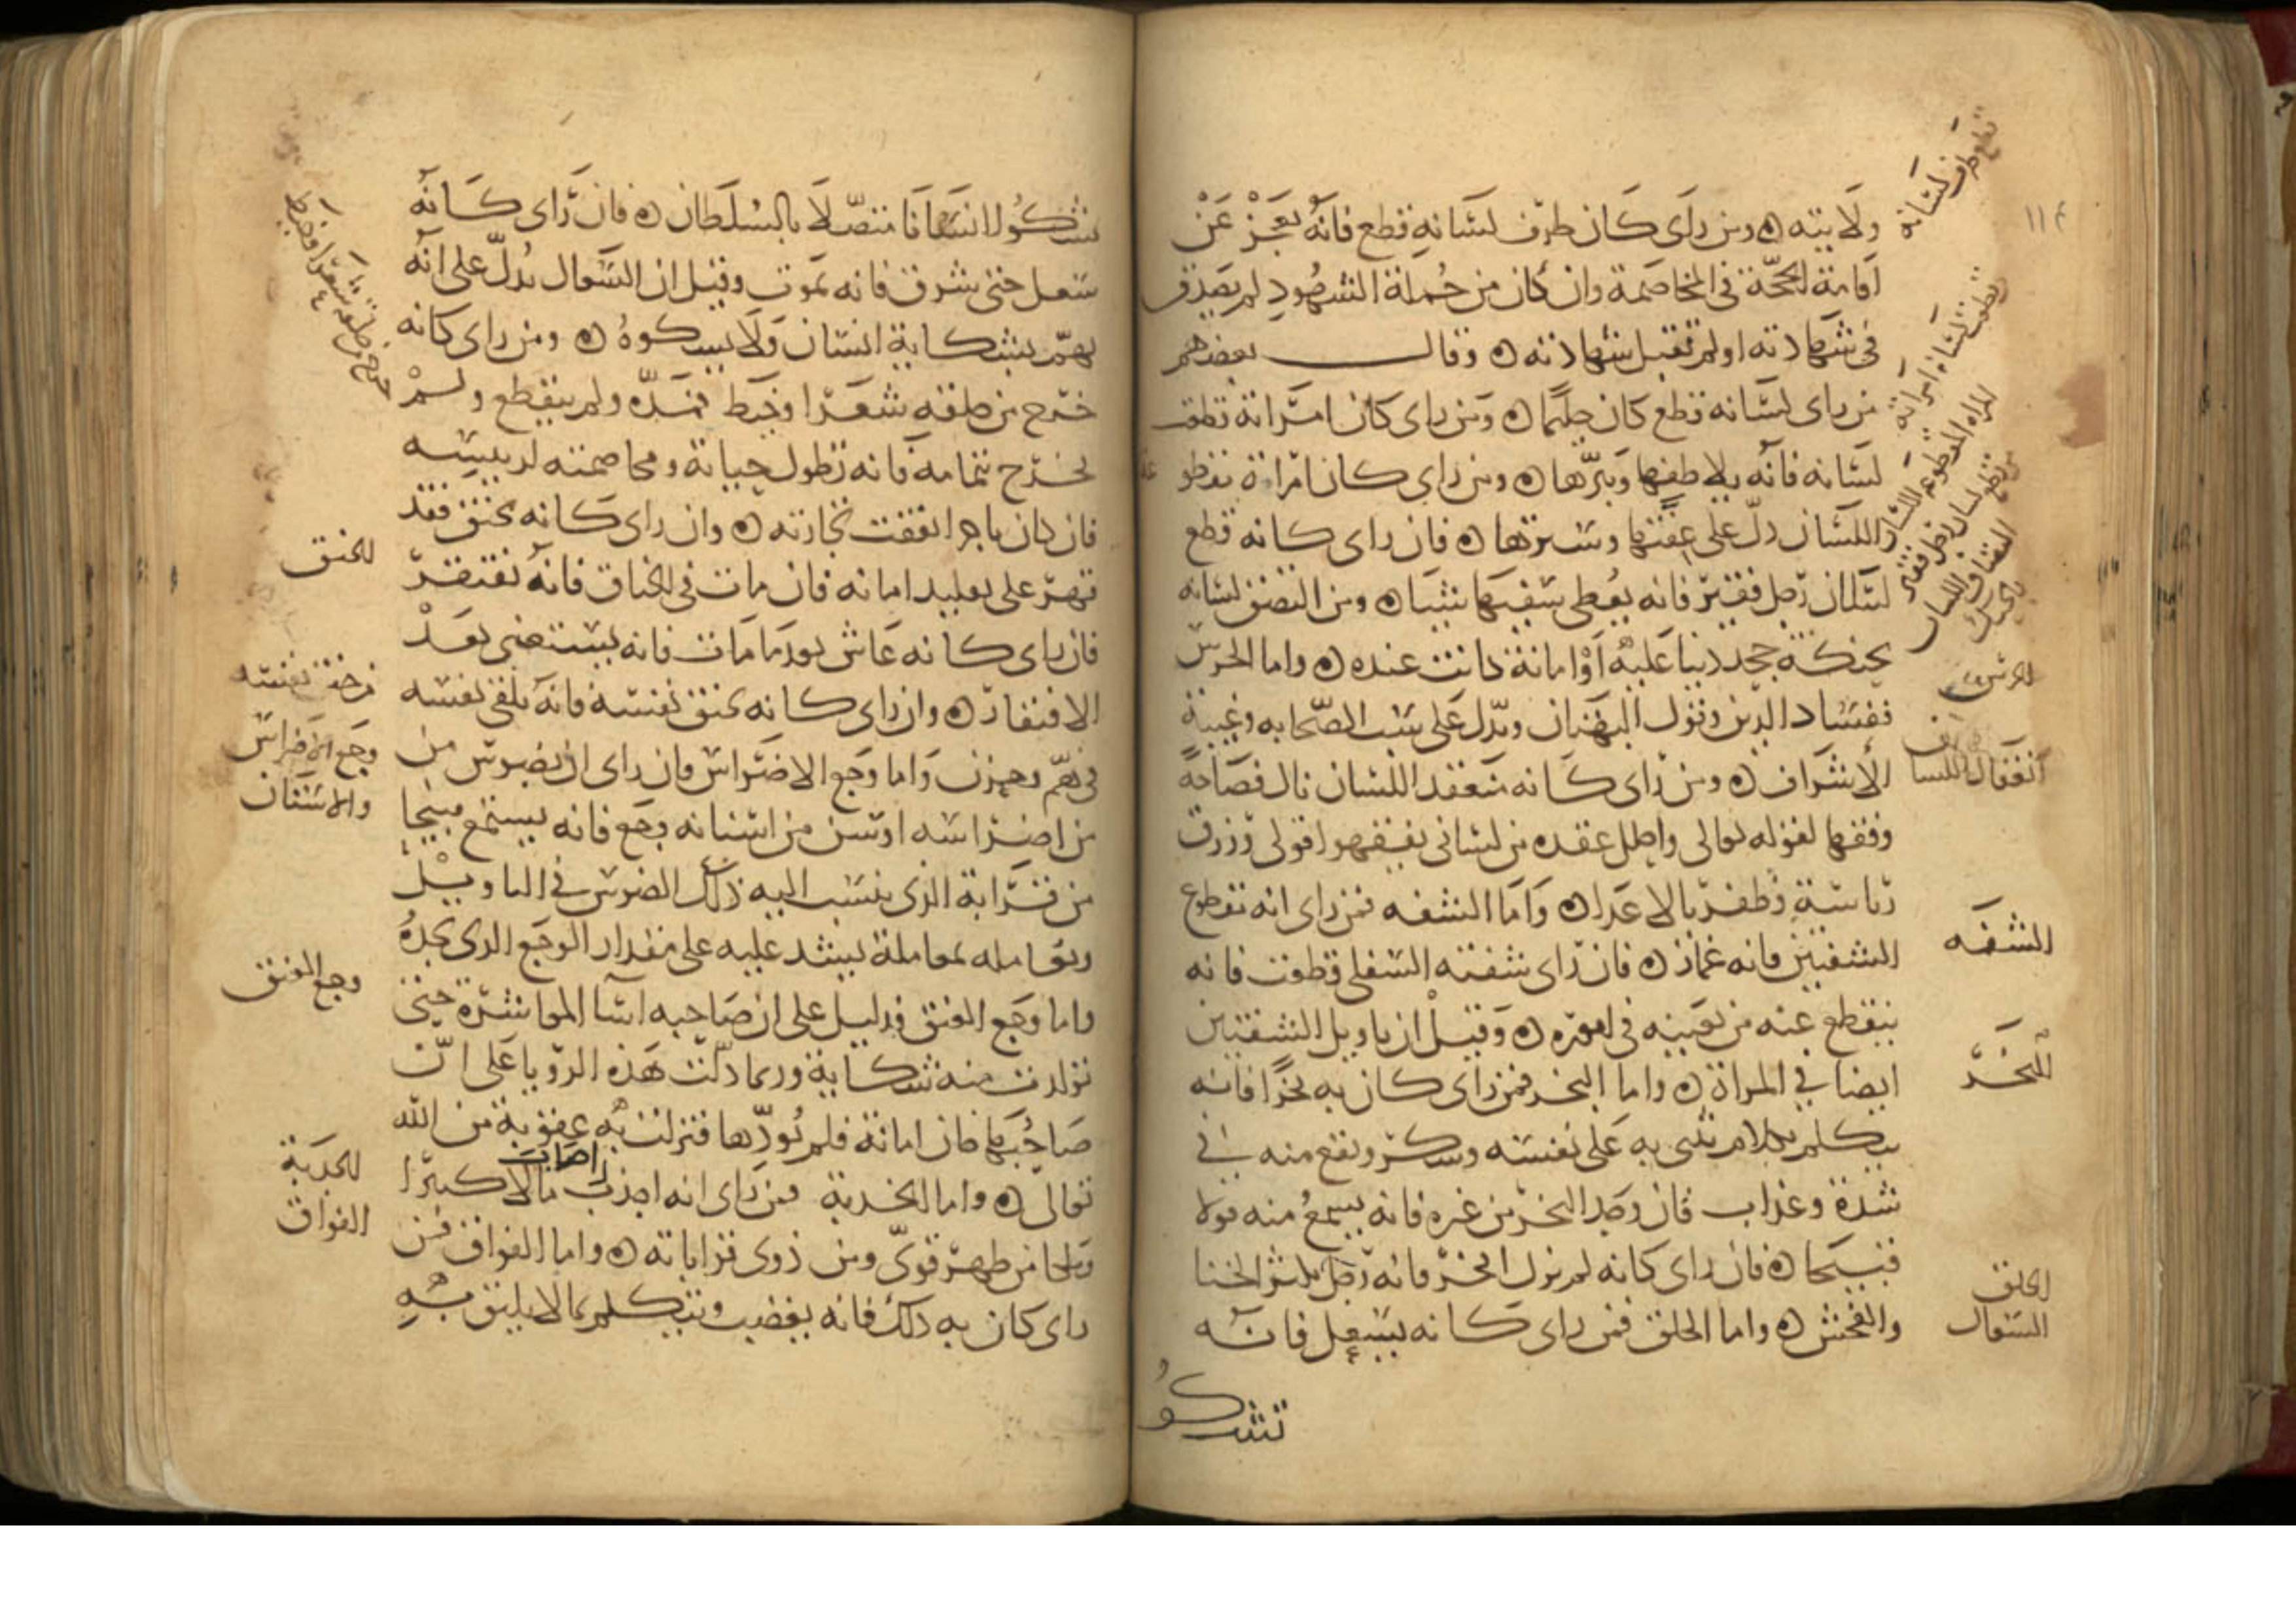 ١١٤
قطع طرف لسانه
ولايته ۵ ومن رای كان طرف لسانه قطع فانه يعجز عن
اقامة الحجة في المخاصمة وان كان من جملة الشهود لم يصدق
في شهادته او لم تقبل شهادته ۵ وقال بعضهم
من رای لسانه قطع كان حليما ۵ ومن رای كان امراته قطعت
لسانه فانه يلاطفها ويبرها ۵ ومن رای كان امراة مقطوعة
اللسان دل على عفتها وسترها ۵ فان رای كانه قطع
لسان رجل فقير فانه يعطي سفيها شيئا ۵ ومن التصق لسانه
بحنكه جحد دينا عليه او امانة كانت عنده ۵ واما الخرس
ففساد الدين وقول البهتان ويدل على سب الصحابه وغيبة
الأشراف ۵ ومن رای كانه منعقد اللسان نال فصاحة
وفقها لقوله تعالى واحلل عقدة من لساني يفقهوا قولي ورزق
رياسة وظفر بالاعدا ۵ واما الشفه فمن رای انه مقطوع
الشفتين فانه غماز ۵ فان رای شفته السفلى قطعت فانه
ينقطع عنه من يعينه في اموره ۵ وقيل ان تاويل الشفتين
ايضا في المراة ۵ واما البخر فمن رای كان به بخرا فانه
يتكلم بكلام يثني به على نفسه ويقع منه في
شدة وعذاب فان وجد البخر من غيره فانه يسمع منه قولا
قبيحا ۵ فان رای كانه لم يزل ابخر فانه رجل يكثر الخنا
والفحش ۵ واما الحلق فمن رای كانه يسعل فانه
تشكو
تقطيع لسانه امراته
المراه المقطوعه اللسان
قطع لسان رجل فقير
التصاق اللسان
بالحنك
الخرس
انعقاد اللسان
الشفه
البخر
الحلق
السعال
يشكو انسانا متصلا بالسلطان ۵ فان رای كانه
سعل حتى شرق فانه يموت وقيل ان السعال يدل على انه
يهم بشكاية انسان ولا يشكوه ۵ ومن رای كانه
خرج من حلقه شعرا وخيط فمده ولم ينقطع ولم
يخرج بتمامه فانه تطول حياته ومخاصمته لرييسه
فان كان تاجرا نفقت تجارته ۵ وان رای كانه يخنق فقد
قهر على تقليد امانه فان مات في الخناق فانه يفتقر
فان رای كانه عاش بعد ما مات فانه يستغني بعد
الافتقار ۵ وان رای كانه يخنق نفسه فانه يلقي نفسه
في هم وحزن واما وجع الاضراس فان رای ان بضرس من
من اضراسه او سن من اسنانه وجع فانه يستمع قبيحا
من قرابة الذي ينسب اليه ذلك الضرس في التاويل
ويعامله بمعاملة يشتد عليه على مقدار الوجع الذي يجده
واما وجع العنق فدليل على ان صاحبه اسا المعاشرة حتى
تولدت منه شكاية وربما دلت هذه الرويا على ان
صاحبها خان امانة فلم يودها فنزلت به عقوبة من الله
تعالى ۵ واما الحدبة فمن رای انه احدب اصاب مالا كثيرا
وملكا من ظهر قوي ومن ذوي قراباته ۵ واما الفواق فمن
رای كان به ذلك فانه يغضب ويتكلم بما لا يليق به
خرج من حلقه شعرا او خيط
الخنق
من خنق نفسه
وجع الاضراس
والاسنان
وجع العنق
الحدبة
الفواق